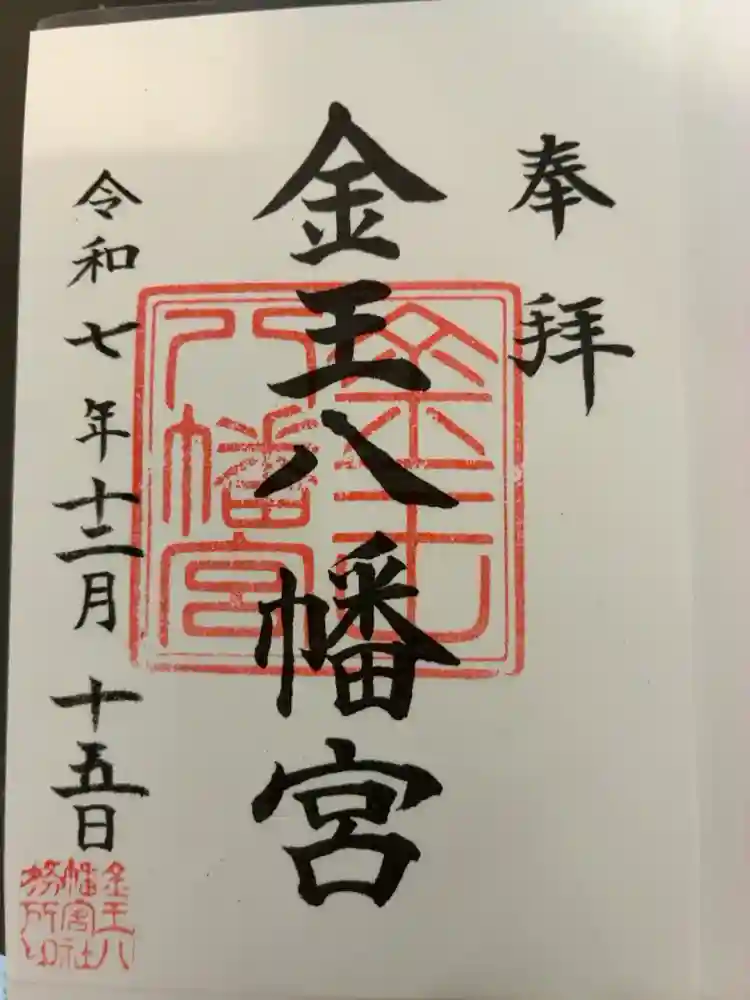 奉拝
金王八幡宮
金王
八幡宮
令和七年十二月十五日
金王八
幡宮社
務所印